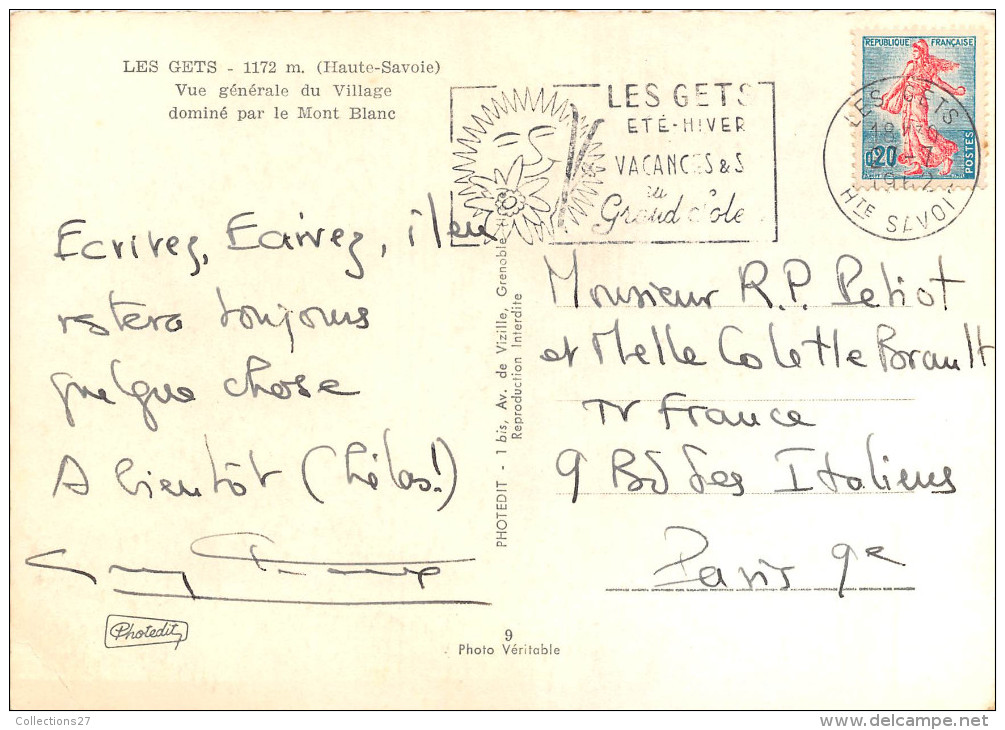 LES GETS - 1172 m. (Haute-Savoie)
Vue générale du Village
dominé par le Mont Blanc
LES GETS
ÉTÉ-HIVER
VACANCES & S
au
Grand Sole
REPUBLIQUE FRANÇAISE
0,20
POSTES
LES GETS
HTE SAVOIE
Ecrivez, Ecrivez, il en
restera toujours
quelque chose
A bientôt (hélas!)
PHOTEDIT - 1 bis, Av. de Vizille, Grenoble
Reproduction Interdite
Monsieur R.P. Petiot
et Melle Colette Brault
TV France
9 Bd des Italiens
Paris 9e
Photedit
9
Photo Véritable
Collections27
delcampe.net